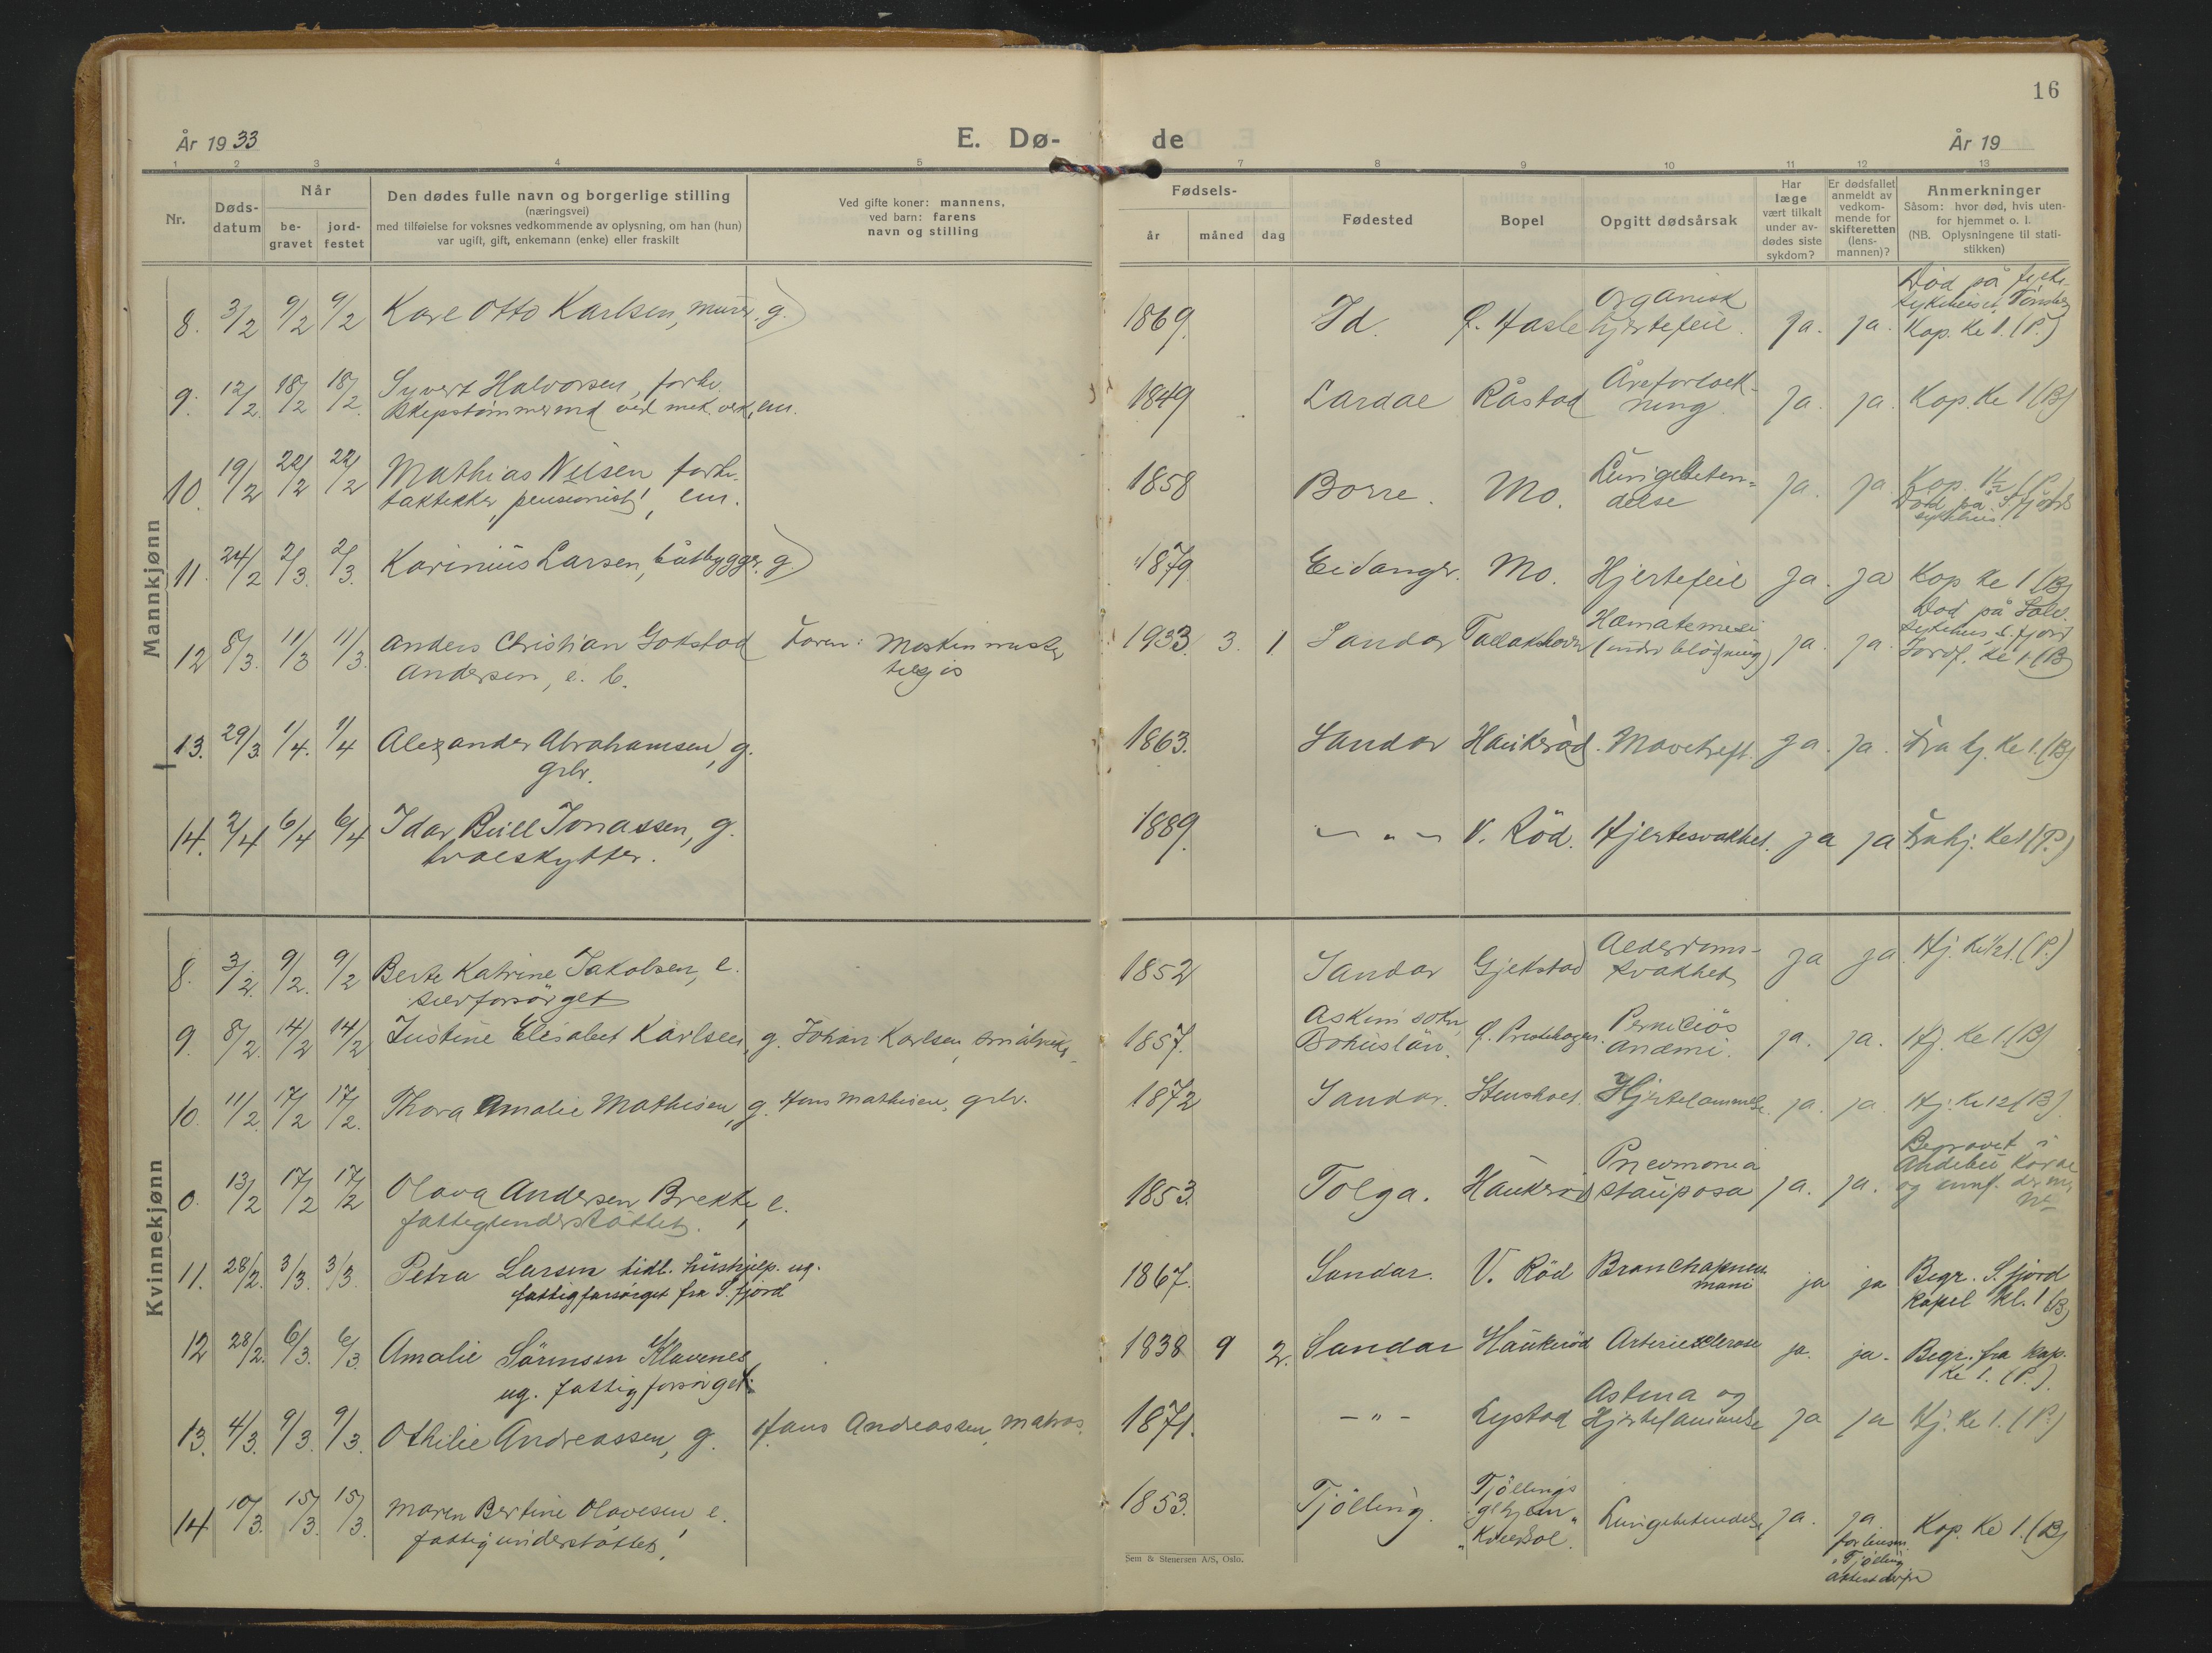 16
År 1933
E. Dø- de
År 19
1 2 3 4 5 7 8 9 10 11 12 13
Nr.
Døds-
datum
Når
be-
gravet
jord-
festet
Den dødes fulle navn og borgerlige stilling
(næringsvei)
med tilføielse for voksnes vedkommende av oplysning, om han (hun)
var ugift, gift, enkemann (enke) eller fraskilt
Ved gifte koner: mannens,
ved barn: farens
navn og stilling
Fødsels-
år
måned
dag
Fødested
Bopel
Opgitt dødsårsak
Har
læge
vært tilkalt
under av-
dødes siste
sykdom?
Er dødsfallet
anmeldt av
vedkom-
mende for
skifteretten
(lens-
mannen)?
Anmerkninger
Såsom: hvor død, hvis uten-
for hjemmet o. l.
(NB. Oplysningene til stati-
stikken)
Mannkjønn
8. 3/2 9/2 9/2 Karl Otto Karlsen, murer. g. 1869. Id. Hasle Organisk
hjertefeil. ja. ja. Død på
sykehuset, Tønsberg
Kap. kl 1. (P.)
9. 12/2 18/2 18/2 Syvert Halvorsen, forhv.
skipstømmermd ved mek. verk, em. 1849 Lardal Råstad Åreforkalk-
ning. ja. ja. Kap. kl 1 (B)
10. 19/2 22/2 22/2 Mathias Nilsen forhv.
taktekker, pensionist, em. 1858 Borre. Mo. Lungebeten-
delse ja. ja. Kap. 1½ (P.)
Død på S.fjords
sykehus
11. 24/2 2/3. 2/3. Karinius Larsen, båtbygger. g. 1879 Eidanger. Mo. Hjertefeil ja. ja Kap kl 1 (B)
12 8/3. 11/3 11/3. Anders Christian Gokstad
Andersen, e. b. Faren: Maskinmester
1933. 3. 1. Sandar Hæmatemesi
(indre blødning) ja. ja. Død på
sykehus S.fjord
Jordf. kl 1 (B)
13. 29/3 1/4. 1/4 Alexander Abrahamsen, g.
grbr. 1863. Sandar Haukerød. Mavekreft. ja. ja. Fra hj. kl 1. (B)
14. 2/4 6/4 6/4 Idar Bull Jonassen, g.
hvalskytter. 1889. — " — V. Röd. Hjertesvakhet. ja ja Fra hj. kl 1 (P.)
Kvinnekjønn
8. 3/2. 9/2. 9/2 Berte Katrine Jakobsen, e.
selvforsörget 1852 Sandar Gjekstad Alderdoms-
svakhet ja ja Hj. kl ½1. (P.)
9. 8/2. 14/2 14/2 Justine Elisabet Karlsen, g. Johan Karlsen, 1857. Askim sokn,
Bohuslän. Perniciös
anæmi. ja. ja. Hj. kl 1 (B)
10. 11/2. 17/2 17/2. Thora Amalie Mathisen, g. Hans Mathisen, grbr. 1872 Sandar. Hjertelammelse. ja. ja. Hj. kl 12 (B)
0. 13/2 17/2 17/2 Olava Andersen Brekke, e.
fattigunderstöttet. 1853. Tolga. Haukerød Pneumonia
ja. ja. Begravet i
Andebu
11. 28/2. 3/3. 3/3. Petra Larsen tidl. hushjelp. ug.
fattigforsörget fra S. fjord 1867. Sandar. V. Röd Bronchopneu-
moni ja ja Begr. S. fjord
Kapel kl. 1 (B)
12 28/2. 6/3. 6/3. Amalie Sörensen Klavenes,
ug. fattigforsörget. 1838 9 2. Sandar Haukeröd Arteriesclerose ja. ja. Begr. fra kap.
kl 1. (P.).
13. 4/3. 9/3. 9/3. Othilie Andreassen, g. Hans Andreassen, matros. 1871. — " — Lystad Astma og
Hjertelammelse ja ja Hj. kl 1. (P.)
14 10/3. 15/3. 15/3. Maren Bertine Olavesen, e.
fattigunderstöttet. 1853. Tjölling. Tjöllings
Lungebetendelse ja. ja.
Tjölling
Kap. kl 1. (B)
Sem & Stenersen A/S, Oslo.